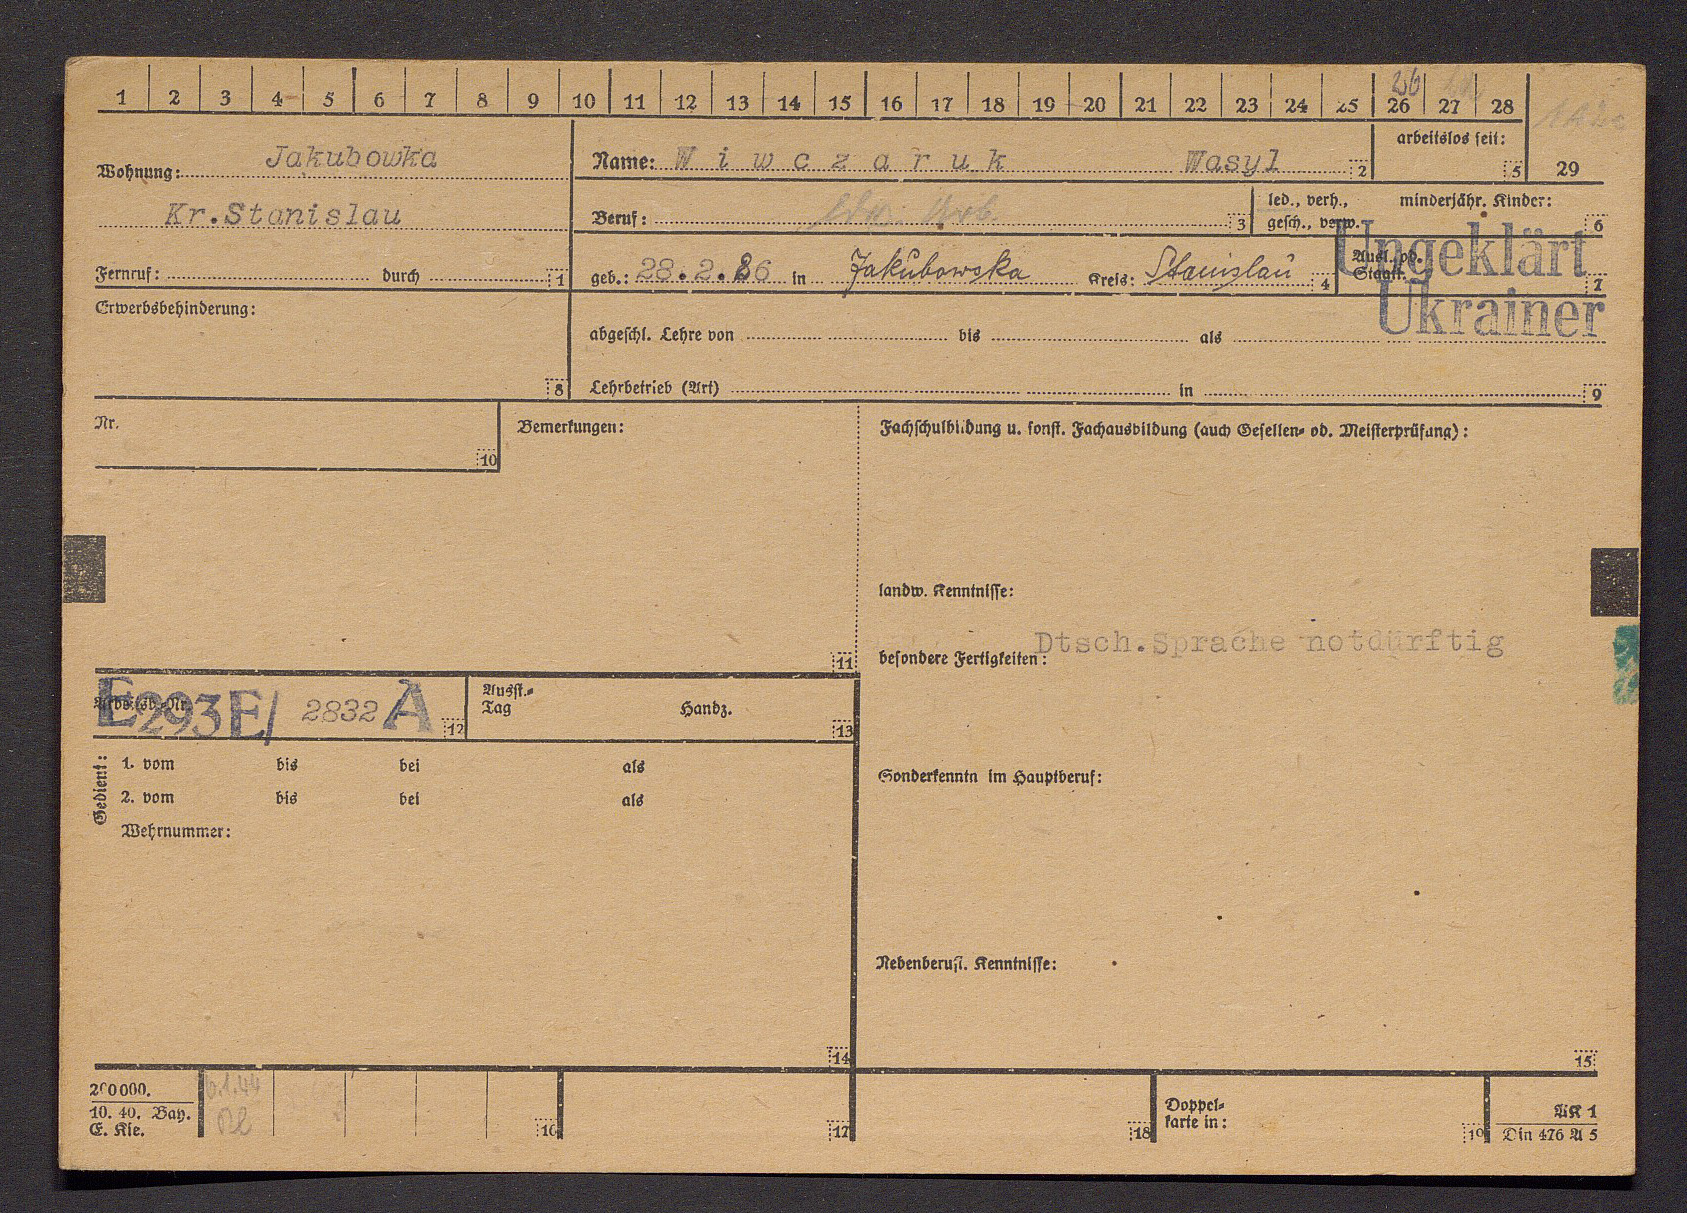 1 2 3 4 5 6 7 8 9 10 11 12 13 14 15 16 17 18 19 20 21 22 23 24 25 26 27 28
26
arbeitslos seit:
5 29
Wohnung: Jakubowka
Kr.Stanislau
Fernruf: durch 1
Name: Wiwczaruk Wasyl 2
Beruf: 3
led., verh., minderjähr. Kinder:
gesch., verw. 6
geb.: 28.2.86 in Jakubowska Kreis: Stanislau 4
Ausl. od.
Staatl. 7
Ungeklärt
Ukrainer
Erwerbsbehinderung:
8
abgeschl. Lehre von bis als
Lehrbetrieb (Art) in 9
Nr.
10
Bemerkungen:
11
Fachschulbildung u. sonst. Fachausbildung (auch Gesellen- od. Meisterprüfung):
landw. Kenntnisse:
Dtsch.Sprache notdürftig
besondere Fertigkeiten:
Sonderkenntn im Hauptberuf:
Nebenberufl. Kenntnisse:
15
Arbeitsb.-Nr.
E293E/ 2832 A 12
Ausst.-
Tag Handz.
13
Gedient:
1. vom bis bei als
2. vom bis bei als
Wehrnummer:
14
200000.
10. 40. Bay.
E. Kie.
6.1.44
16 17 18
Doppel-
karte in:
19
AK 1
Din 476 A 5